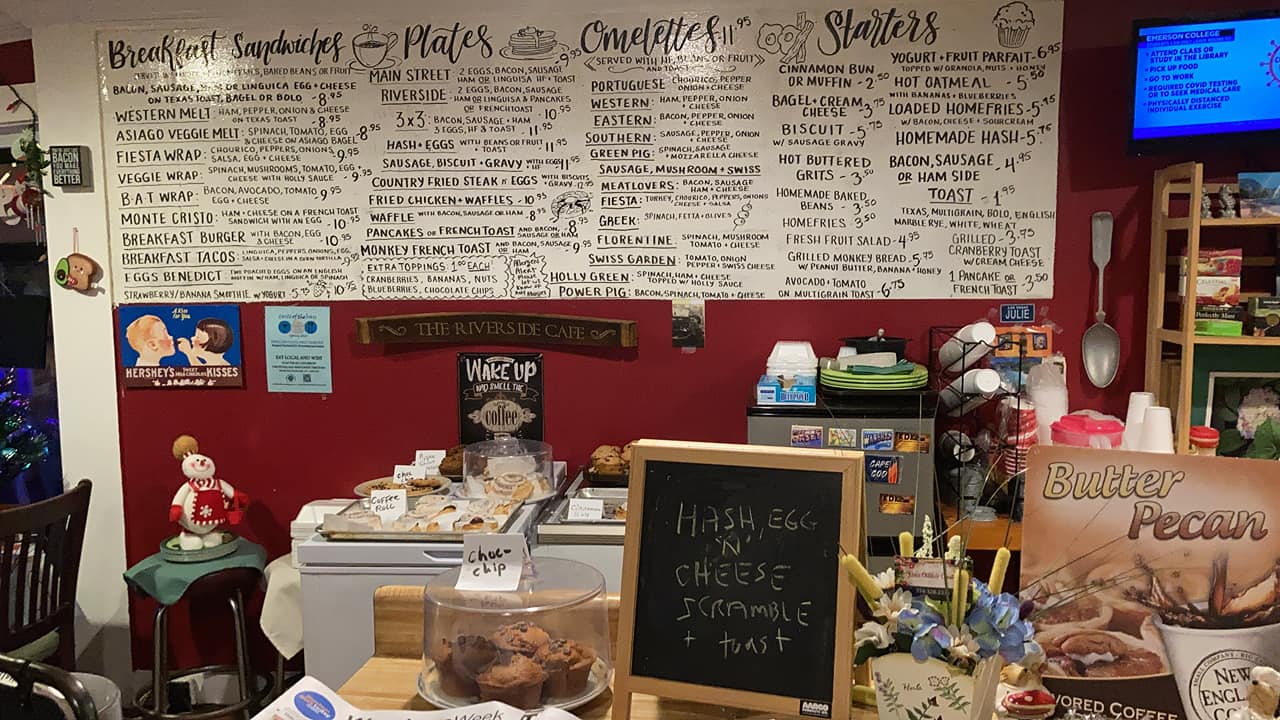 Breakfast Sandwiches
BACON, SAUSAGE, HAM OR LINGUICA EGG + CHEESE
ON TEXAS TOAST, BAGEL OR BOLO - 8.95
WESTERN MELT: HAM, PEPPER, ONION & CHEESE
ON TEXAS TOAST - 8.95
ASIAGO VEGGIE MELT: SPINACH, TOMATO, EGG
& CHEESE ON ASIAGO BAGEL - 8.95
FIESTA WRAP: CHOURICO, PEPPERS, ONIONS,
SALSA, EGG + CHEESE 9.95
VEGGIE WRAP: SPINACH, MUSHROOMS, TOMATO, EGG
CHEESE WITH HOLLY SAUCE - 9.95
B·A·T WRAP: BACON, AVOCADO, TOMATO
EGG + CHEESE 9.95
MONTE CRISTO: HAM + CHEESE ON A FRENCH TOAST
SANDWICH WITH AN EGG - 10.95
BREAKFAST BURGER WITH BACON, EGG
& CHEESE - 10.95
BREAKFAST TACOS: LINGUICA, PEPPERS, ONIONS, EGG,
EGGS BENEDICT: TWO POACHED EGGS ON AN ENGLISH
MUFFIN W/ HAM, LINGUICA OR SPINACH
STRAWBERRY/BANANA SMOOTHIE W/ YOGURT 5.75
Plates
MAIN STREET: 2 EGGS, BACON, SAUSAGE
HAM OR LINGUISA HF + TOAST
RIVERSIDE: 2 EGGS, BACON, SAUSAGE
HAM OR LINGUISA & PANCAKES
OR FRENCH TOAST 10.95
3x3: BACON, SAUSAGE + HAM
3 EGGS, HF & TOAST - 11.95
HASH + EGGS WITH BEANS OR FRUIT
+ TOAST 11.95
SAUSAGE, BISCUIT + GRAVY WITH EGGS 11.95
COUNTRY FRIED STEAK n EGGS WITH BISCUITS
+ GRAVY - 12.95
FRIED CHICKEN + WAFFLES - 10.95
WAFFLE WITH BACON, SAUSAGE OR HAM - 8.95
PANCAKES OR FRENCH TOAST AND BACON,
SAUSAGE OR HAM
MONKEY FRENCH TOAST AND BACON, SAUSAGE
OR HAM 9.95
EXTRA TOPPINGS 1.00 EACH
CRANBERRIES, BANANAS, NUTS
BLUEBERRIES, CHOCOLATE CHIPS
Omelettes 11.95
SERVED WITH HF, BEANS OR FRUIT
AND TOAST
PORTUGUESE: CHOURICO, PEPPER
ONION + CHEESE
WESTERN: HAM, PEPPER, ONION
+ CHEESE
EASTERN: BACON, PEPPER, ONION
+ CHEESE
SOUTHERN: SAUSAGE, PEPPER, ONION
+ CHEESE
GREEN PIG: SPINACH, SAUSAGE
+ MOZZARELLA CHEESE
SAUSAGE, MUSHROOM + SWISS
MEATLOVERS: BACON, SAUSAGE
HAM + CHEESE
FIESTA: TURKEY, CHOURICO, PEPPERS, ONIONS
CHEESE + SALSA
GREEK: SPINACH, FETTA + OLIVES
FLORENTINE: SPINACH, MUSHROOM
TOMATO + CHEESE
SWISS GARDEN: TOMATO, ONION
PEPPER + SWISS CHEESE
HOLLY GREEN: SPINACH, HAM + CHEESE
TOPPED W/ HOLLY SAUCE
POWER PIG: BACON, SPINACH, TOMATO + CHEESE
Starters
CINNAMON BUN
OR MUFFIN - 2.50
BAGEL + CREAM
CHEESE 3.75
BISCUIT - 5.75
W/ SAUSAGE GRAVY
HOT BUTTERED
GRITS - 3.50
HOMEMADE BAKED
BEANS - 3.50
HOMEFRIES - 3.50
FRESH FRUIT SALAD - 4.95
GRILLED MONKEY BREAD - 5.75
W/ PEANUT BUTTER, BANANA + HONEY
AVOCADO + TOMATO
ON MULTIGRAIN TOAST - 6.75
YOGURT + FRUIT PARFAIT - 6.95
TOPPED W/ GRANOLA, NUTS + HONEY
HOT OATMEAL - 5.50
WITH BANANAS + BLUEBERRIES
LOADED HOMEFRIES - 5.95
W/ BACON, CHEESE + SOURCREAM
HOMEMADE HASH - 5.75
BACON, SAUSAGE
OR HAM SIDE - 4.95
TOAST - 1.95
TEXAS, MULTIGRAIN, BOLO, ENGLISH
MARBLE RYE, WHITE, WHEAT
GRILLED - 3.95
CRANBERRY TOAST
W/ CREAM CHEESE
1 PANCAKE OR
FRENCH TOAST - 3.50
EMERSON COLLEGE
• ATTEND CLASS OR
STUDY IN THE LIBRARY
• PICK UP FOOD
• GO TO WORK
• REQUIRED COVID TESTING
OR TO SEEK MEDICAL CARE
• PHYSICALLY DISTANCED
INDIVIDUAL EXERCISE
BACON
MAKES
EVERYTHING
BETTER
A Kiss
For You
HERSHEY'S SWEET MILK CHOCOLATE KISSES
EAT LOCAL AND WIN!
THE RIVERSIDE CAFE
WAKE UP
AND SMELL THE
coffee
JULIE
CAPE
COD
Perfectly Mint
COFFEE
ROLL
Choc-
chip
HASH, EGG
'N'
CHEESE
SCRAMBLE
+ toast
AARCO
Butter
Pecan
VORED COFFEE
NEW
ENGL
CO
Herbs
Week